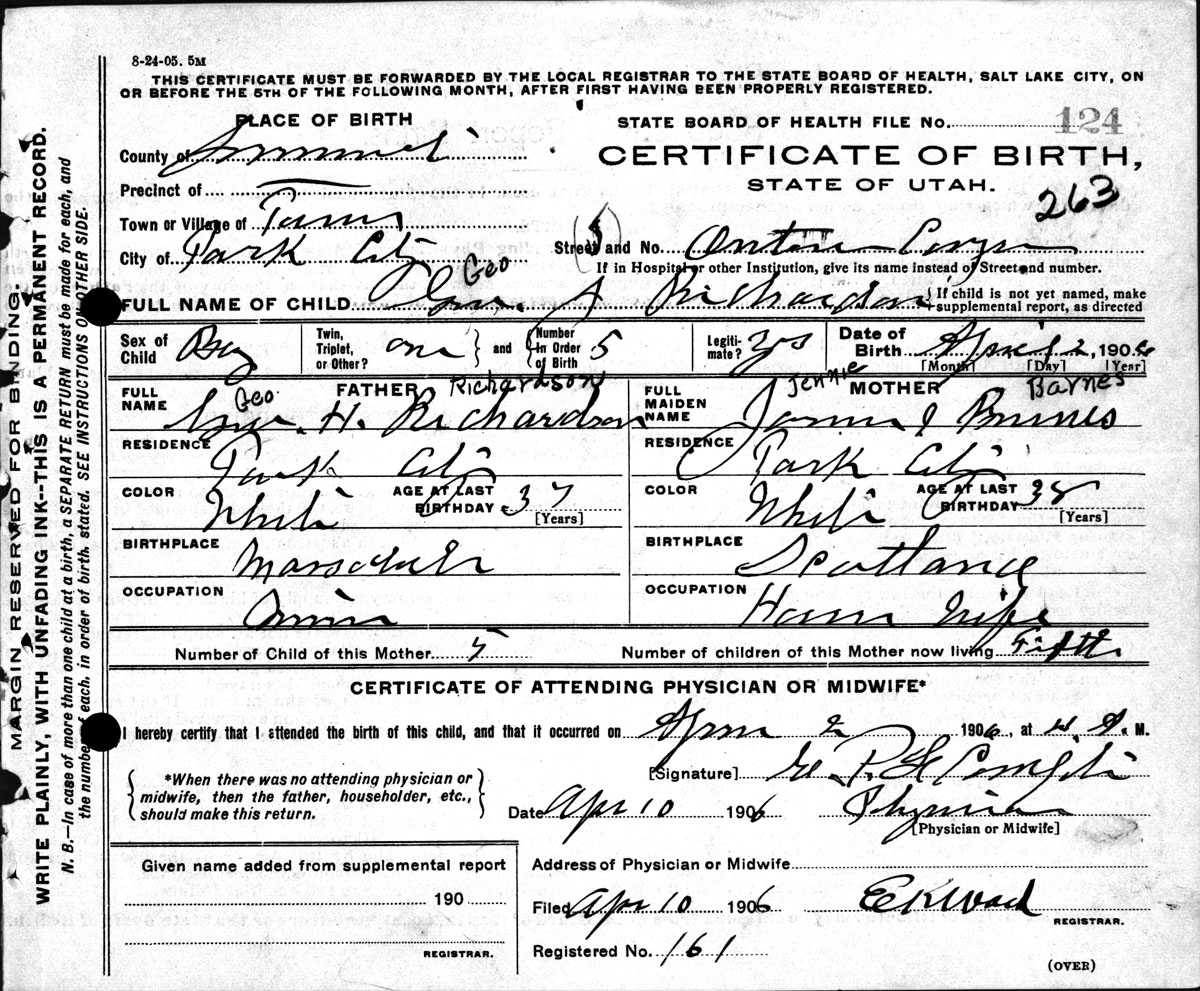 8-24-05. 5M
THIS CERTIFICATE MUST BE FORWARDED BY THE LOCAL REGISTRAR TO THE STATE BOARD OF HEALTH, SALT LAKE CITY, ON
OR BEFORE THE 5TH OF THE FOLLOWING MONTH, AFTER FIRST HAVING BEEN PROPERLY REGISTERED.
PLACE OF BIRTH
STATE BOARD OF HEALTH FILE No. 124
County of Summit
CERTIFICATE OF BIRTH,
STATE OF UTAH.
263
Precinct of
Town or Village of
City of Park City
Street and No. Ontario
If in Hospital or other Institution, give its name instead of Street and number.
FULL NAME OF CHILD Geo J Richardson
If child is not yet named, make
supplemental report, as directed
Sex of Child Boy
Twin, Triplet, or Other? one and Number In Order of Birth 5
Legitimate? yes
Date of Birth April 2, 1906
[Month] [Day] [Year]
FATHER
FULL NAME Geo. H. Richardson
Richardson
RESIDENCE Park City
COLOR White AGE AT LAST BIRTHDAY 37
[Years]
BIRTHPLACE
OCCUPATION
MOTHER
FULL MAIDEN NAME Jennie J Barnes
RESIDENCE Park City
COLOR White AGE AT LAST BIRTHDAY 38
[Years]
BIRTHPLACE Scottland
OCCUPATION House Wife
Number of Child of this Mother 5 Number of children of this Mother now living Fifth
CERTIFICATE OF ATTENDING PHYSICIAN OR MIDWIFE*
I hereby certify that I attended the birth of this child, and that it occurred on April 2 1906, at 4, A. M.
*When there was no attending physician or
midwife, then the father, householder, etc.,
should make this return.
[Signature]
Date Apr 10 1906 Physician
[Physician or Midwife]
Given name added from supplemental report
190
REGISTRAR.
Address of Physician or Midwife
Filed Apr 10 1906
REGISTRAR.
Registered No. 161
(OVER)
MARGIN RESERVED FOR BINDING.
WRITE PLAINLY, WITH UNFADING INK--THIS IS A PERMANENT RECORD.
N. B.—In case of more than one child at a birth, a SEPARATE RETURN must be made for each, and
the number of each, in order of birth, stated. SEE INSTRUCTIONS ON OTHER SIDE.